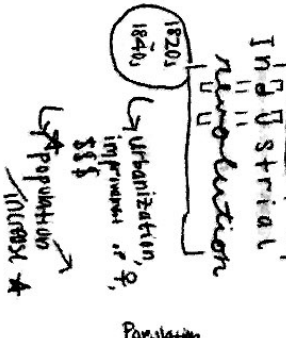 Industrial
revolution
1820s
1840s
↳ urbanization, ♀,
improvement of
$$$
↳ ★ population ↗
increase ★
Population